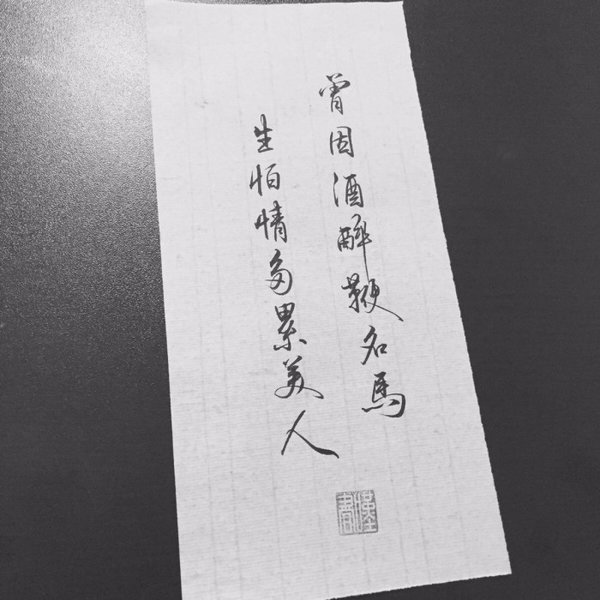 曾因酒醉鞭名馬
生怕情多累美人